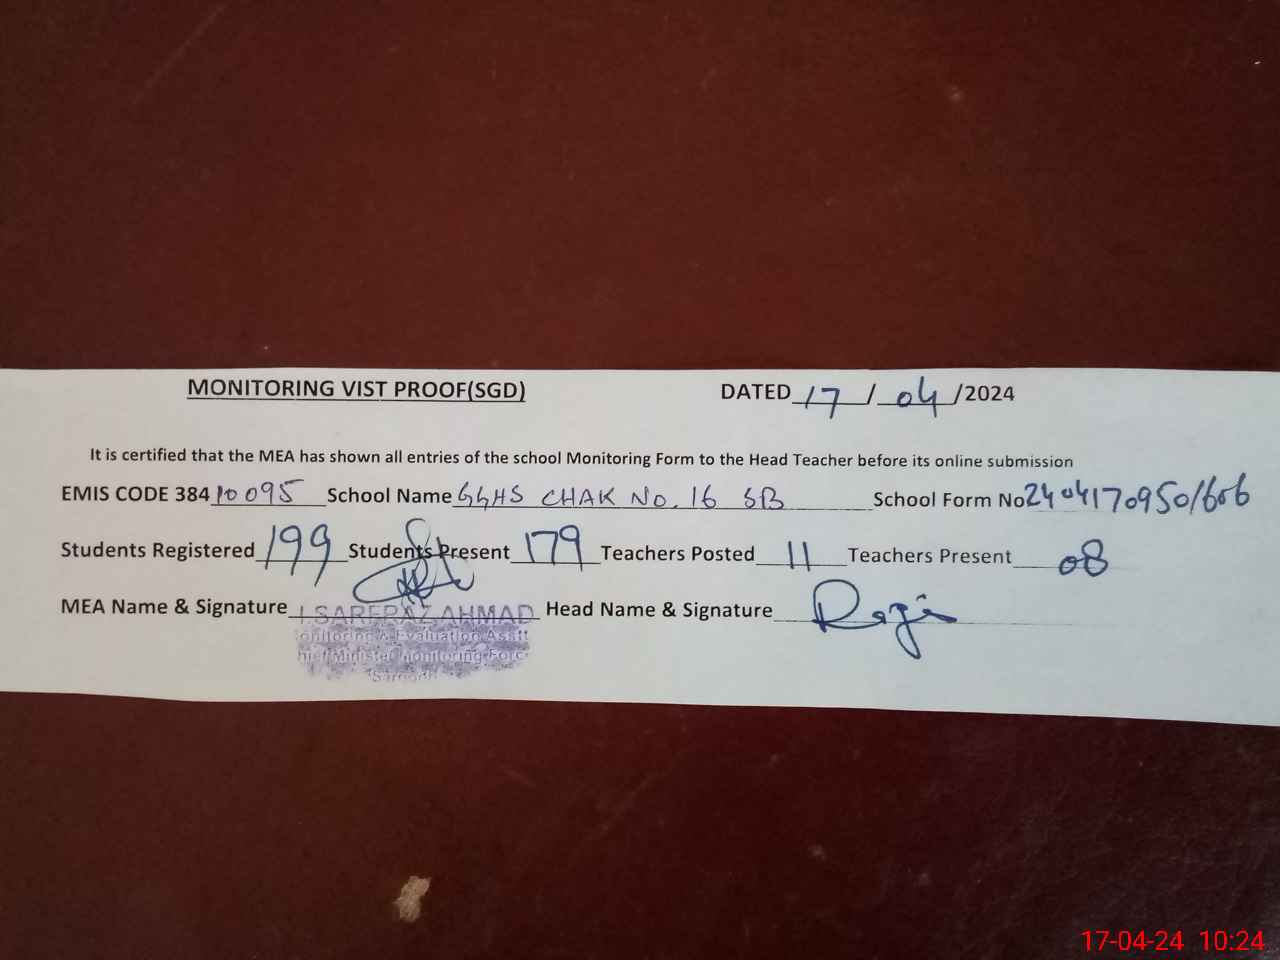 MONITORING VIST PROOF(SGD) DATED 17/04/2024
It is certified that the MEA has shown all entries of the school Monitoring Form to the Head Teacher before its online submission
EMIS CODE 38410095 School Name GGHS CHAK No. 16 SB School Form No 24041709501606
Students Registered 199 Students Present 179 Teachers Posted 11 Teachers Present 08
MEA Name & Signature SARFRAZ AHMAD Head Name & Signature
Monitoring & Evaluation Asstt
Chief Minister Monitoring Force
Sargodha
17-04-24 10:24